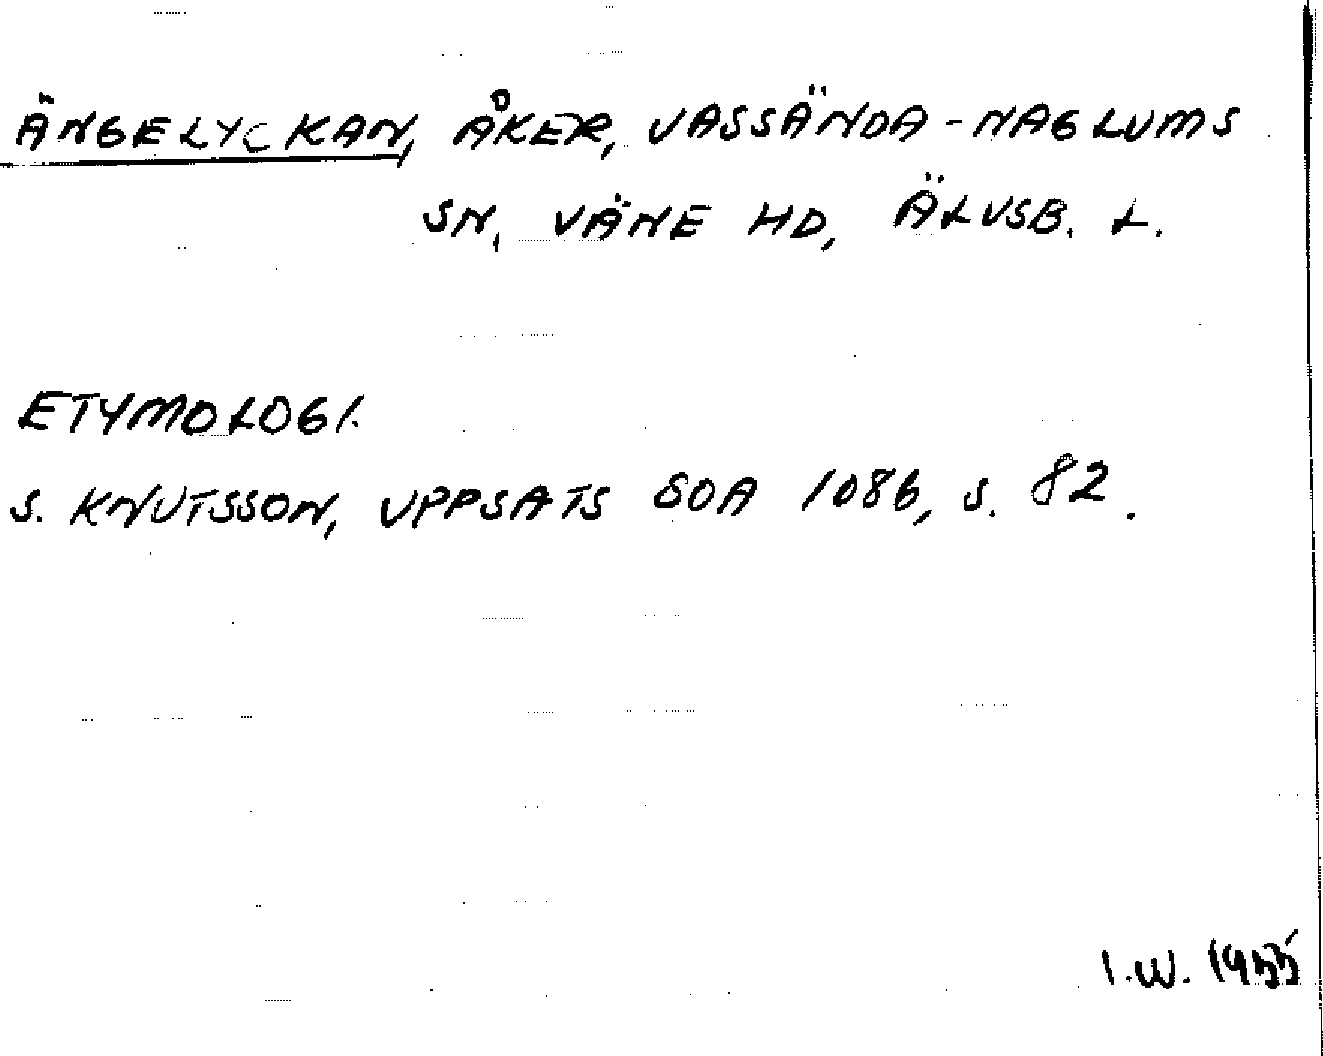 ÄNGELYCKAN, ÅKER, VASSÄNDA-NAGLUMS
SN, VÄNE HD, ÄLVSB. L.
ETYMOLOGI.
S. KNUTSSON, UPPSATS GOA 1086, S. 82.
I.W. 1955